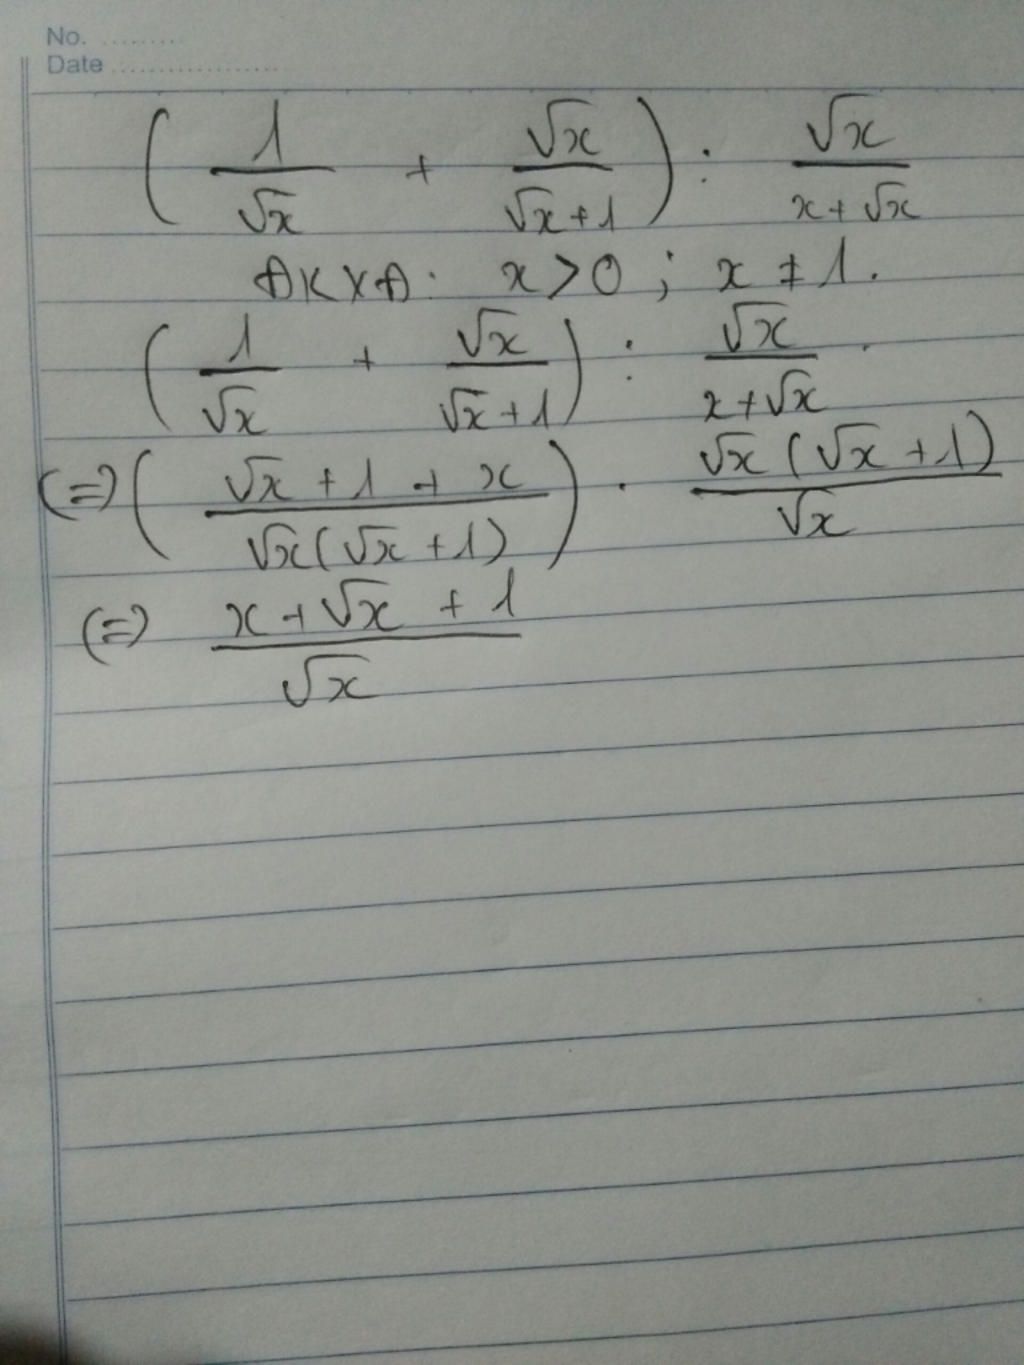 No. .........
Date ..................
( 1/√x + √x/(√x+1) ) : √x/(x+√x)
ĐKXĐ: x > 0 ; x ≠ 1.
( 1/√x + √x/(√x+1) ) : √x/(x+√x) .
(=) ( (√x + 1 + x)/(√x(√x+1)) ) . (√x(√x+1))/√x
(=) (x+√x + 1)/√x